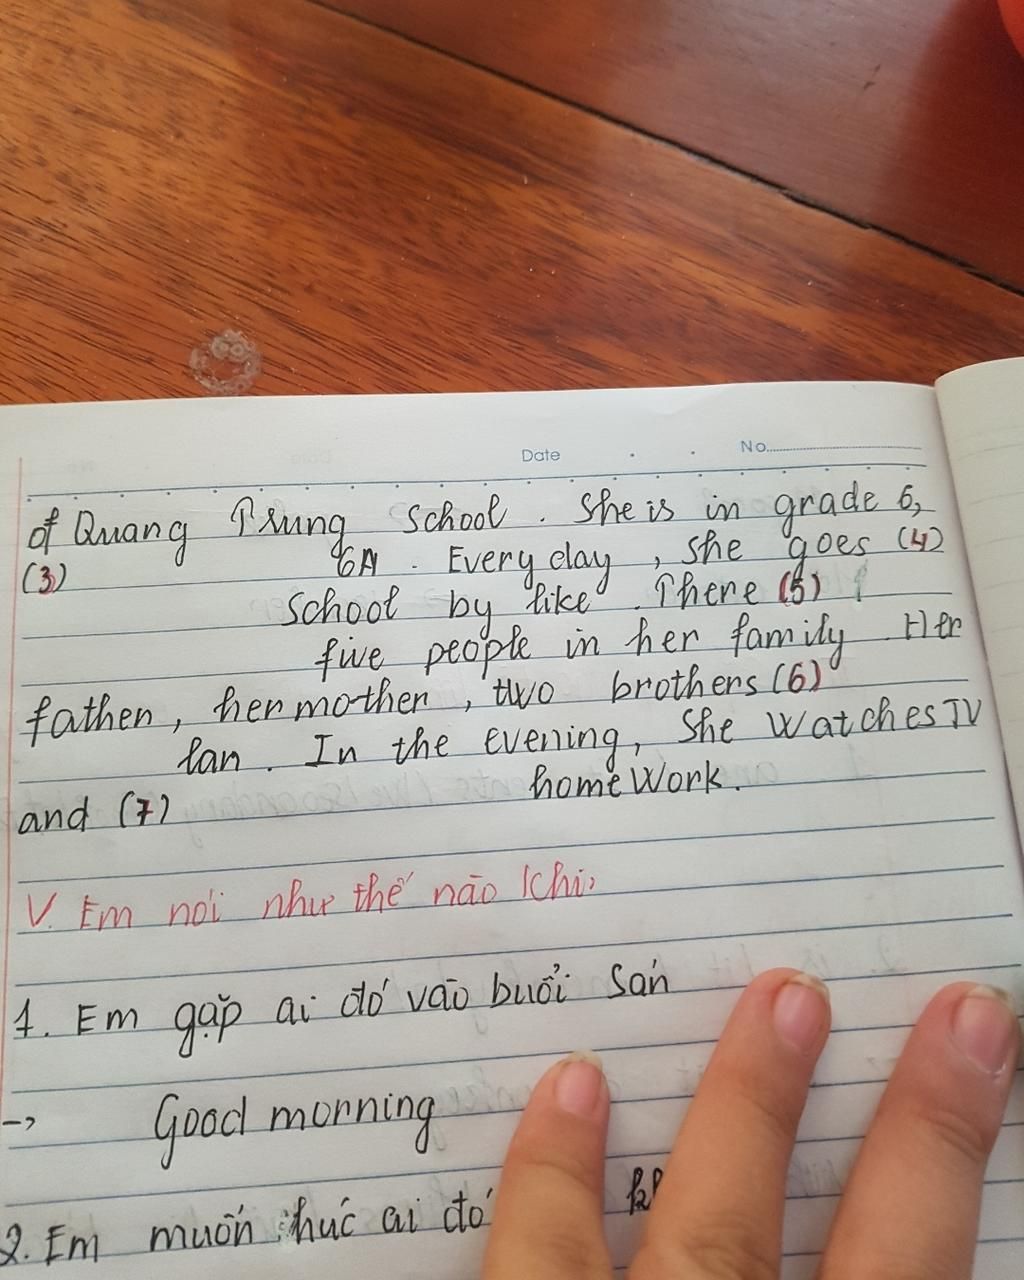 Date No.
of Quang Trung School. She is in grade 6,
(3) 6A. Every day, she goes (4)
School by like. There (5)
five people in her family. Her
father, her mother, two brothers (6)
lan. In the evening, She Watches TV
and (7) home Work.
V. Em nói như thế nào khi:
1. Em gặp ai đó vào buổi sán
-> Good morning
2. Em muốn ai đó